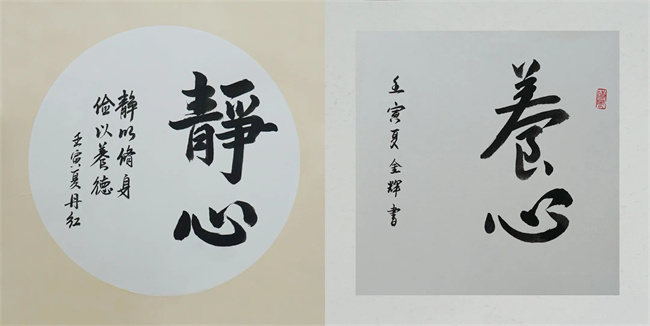 靜心
靜以脩身
儉以養德
壬寅夏丹紅
養心
壬寅夏金輝書